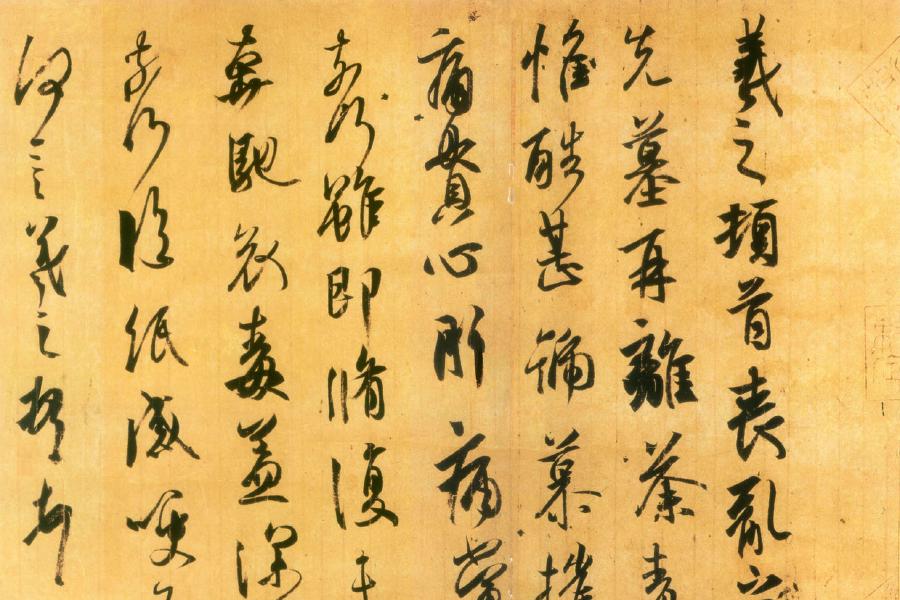 羲之頓首喪亂之
先墓再離荼毒
惟酷甚號慕摧
痛貫心肝痛當
柰何雖即脩復未
奔馳哀毒益深
柰何臨紙感哽
何言羲之頓首